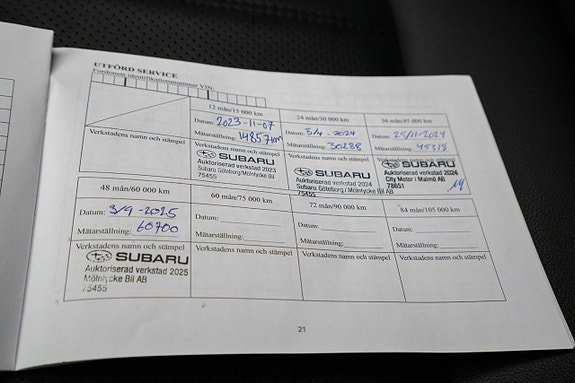 UTFÖRD SERVICE
Fordonets identifikationsnummer VIN:
12 mån/15 000 km
Datum: 2023-11-07
Mätarställning: 14857km
Verkstadens namn och stämpel
SUBARU
Auktoriserad verkstad 2023
Subaru Göteborg/Mölnlycke Bil
75455
24 mån/30 000 km
Datum: 5/4 -2024
Mätarställning: 30288
Verkstadens namn och stämpel
SUBARU
Auktoriserad verkstad 2024
Subaru Göteborg/Mölnlycke Bil AB
75455
36 mån/45 000 km
Datum: 25/11-2024
Mätarställning: 45318
SUBARU
Auktoriserad verkstad 2024
City Motor i Malmö AB
78651
48 mån/60 000 km
Datum: 3/9 -2025
Mätarställning: 60700
Verkstadens namn och stämpel
SUBARU
Auktoriserad verkstad 2025
Mölnlycke Bil AB
75455
60 mån/75 000 km
Datum:
Mätarställning:
Verkstadens namn och stämpel
72 mån/90 000 km
Datum:
Mätarställning:
Verkstadens namn och stämpel
84 mån/105 000 km
Datum:
Mätarställning:
Verkstadens namn och stämpel
21